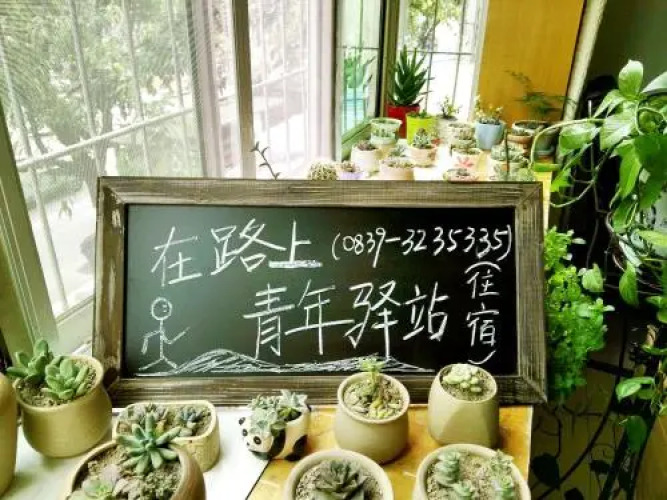 在路上 (0839-3235335)
青年驿站
(住宿)